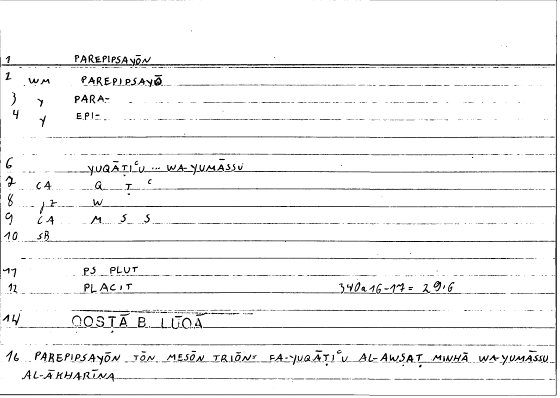 1 PAREPIPSAYŌN
2 WM PAREPIPSAYŌ
3 y PARA-
4 y EPI-
6 YUQĀṬIᶜU ... WA-YUMĀSSU
7 CA Q Ṭ ᶜ
8 W
9 CA M S S
10 SB
11 PS PLUT
12 PLACIT 340a16-17= 29,6
14 QOSṬĀ B. LŪQĀ
16 PAREPIPSAYŌN TŌN MESŌN TRIŌN: FA-YUQĀṬIᶜU AL-AWSAṬ MINHĀ WA-YUMĀSSU
AL-ĀKHARĪNA